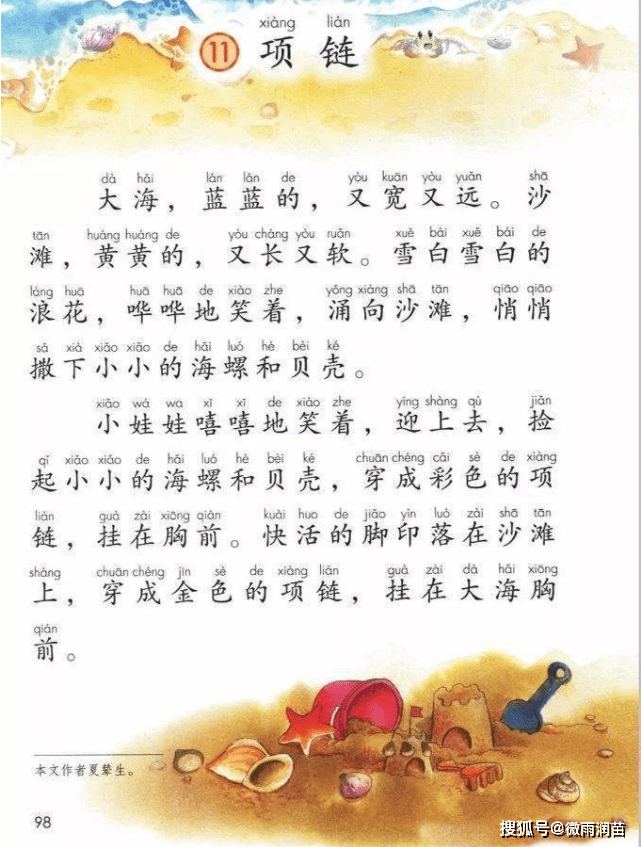 xiàng liàn
11 项链
dà hǎi lán lán de yòu kuān yòu yuǎn shā
大海，蓝蓝的，又宽又远。沙
tān huáng huáng de yòu cháng yòu ruǎn xuě bái xuě bái de
滩，黄黄的，又长又软。雪白雪白的
làng huā huā huā de xiào zhe yǒng xiàng shā tān qiāo qiāo
浪花，哗哗地笑着，涌向沙滩，悄悄
sǎ xià xiǎo xiǎo de hǎi luó hé bèi ké
撒下小小的海螺和贝壳。
xiǎo wá wa xī xī de xiào zhe yíng shàng qù jiǎn
小娃娃嘻嘻地笑着，迎上去，捡
qǐ xiǎo xiǎo de hǎi luó hé bèi ké chuān chéng cǎi sè de xiàng
起小小的海螺和贝壳，穿成彩色的项
liàn guà zài xiōng qián kuài huo de jiǎo yìn luò zài shā tān
链，挂在胸前。快活的脚印落在沙滩
shàng chuān chéng jīn sè de xiàng liàn guà zài dà hǎi xiōng
上，穿成金色的项链，挂在大海胸
qián
前。
本文作者夏辇生。
98
搜狐号@微雨润苗